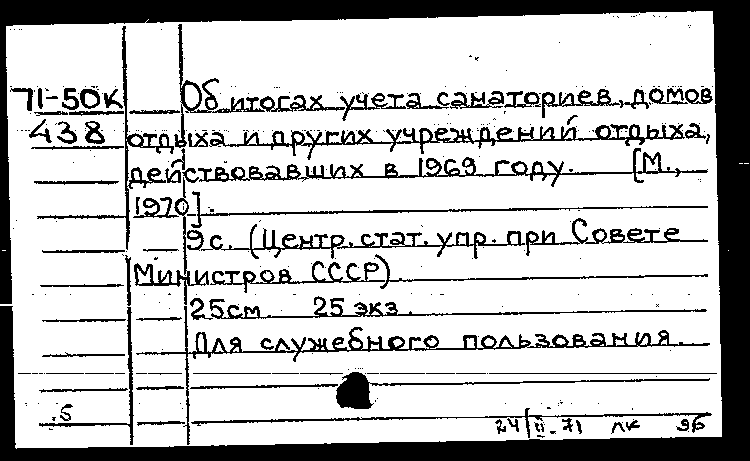 71-50к Об итогах учета санаториев, домов
438 отдыха и других учреждений отдыха,
действовавших в 1969 году. [М.,
1970].
9с. (Центр. стат. упр. при Совете
Министров СССР).
25см 25 экз.
Для служебного пользования.
.5
24/II-71 лк 96